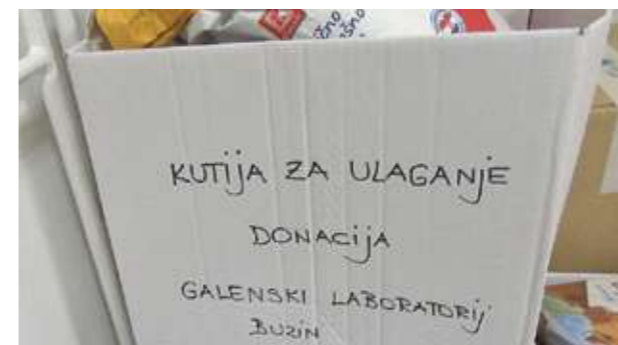 KUTIJA ZA ULAGANJE
DONACIJA
GALENSKI LABORATORIJ
BUZIN